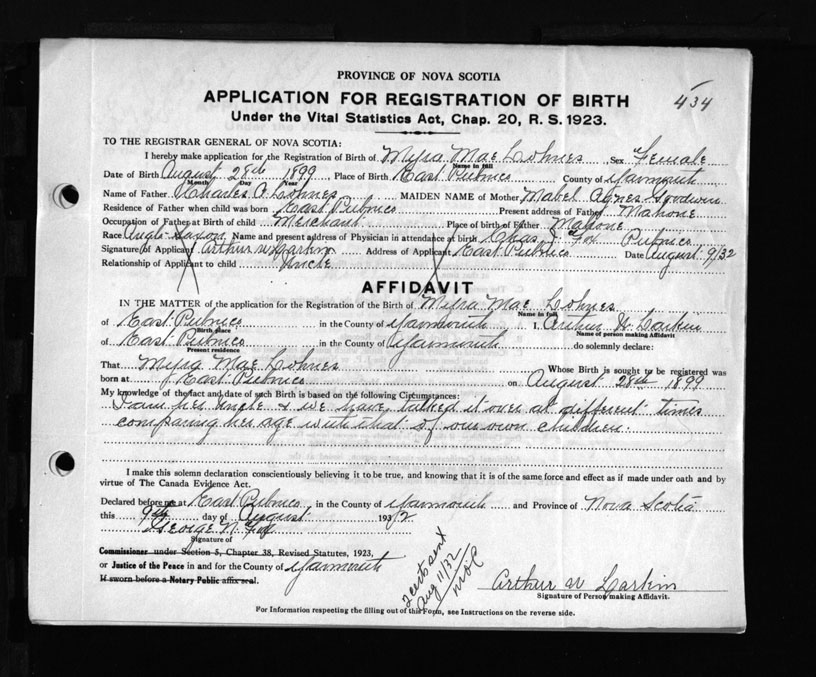 PROVINCE OF NOVA SCOTIA
APPLICATION FOR REGISTRATION OF BIRTH
434
Under the Vital Statistics Act, Chap. 20, R. S. 1923.
TO THE REGISTRAR GENERAL OF NOVA SCOTIA:
I hereby make application for the Registration of Birth of Myra Mae Lohnes Sex Female
Name in full
Date of Birth August 28th 1899 Place of Birth East Pubnico County of Yarmouth
Month Day Year
Name of Father Charles Lohnes MAIDEN NAME of Mother Mabel Agnes Goodwin
Residence of Father when child was born East Pubnico Present address of Father Mahone
Occupation of Father at Birth of child Merchant Place of birth of Father Mahone
Race Anglo-Saxon Name and present address of Physician in attendance at birth Chas Fox Pubnico
Signature of Applicant Arthur W Larkin Address of Applicant East Pubnico Date August 9/32
Relationship of Applicant to child Uncle
AFFIDAVIT
IN THE MATTER of the application for the Registration of the Birth of Myra Mae Lohnes
Name in full
of East Pubnico in the County of Yarmouth I, Arthur W. Larkin
Birth place Name of person making Affidavit
of East Pubnico in the County of Yarmouth do solemnly declare:
Present residence
That Myra Mae Lohnes Whose Birth is sought to be registered was
born at East Pubnico on August 28th 1899
My knowledge of the fact and date of such Birth is based on the following Circumstances:
I am her Uncle & we have talked it over at different times
comparing her age with that of our own children.
I make this solemn declaration conscientiously believing it to be true, and knowing that it is of the same force and effect as if made under oath and by
virtue of The Canada Evidence Act.
Declared before me at East Pubnico in the County of Yarmouth and Province of Nova Scotia
this 9th day of August 1932
George N. Fox
Signature of
Commissioner under Section 5, Chapter 38, Revised Statutes, 1923,
or Justice of the Peace in and for the County of Yarmouth
If sworn before a Notary Public affix seal.
2 certs sent
Aug 11/32
Arthur W Larkin
Signature of Person making Affidavit.
For Information respecting the filling out of this Form, see Instructions on the reverse side.